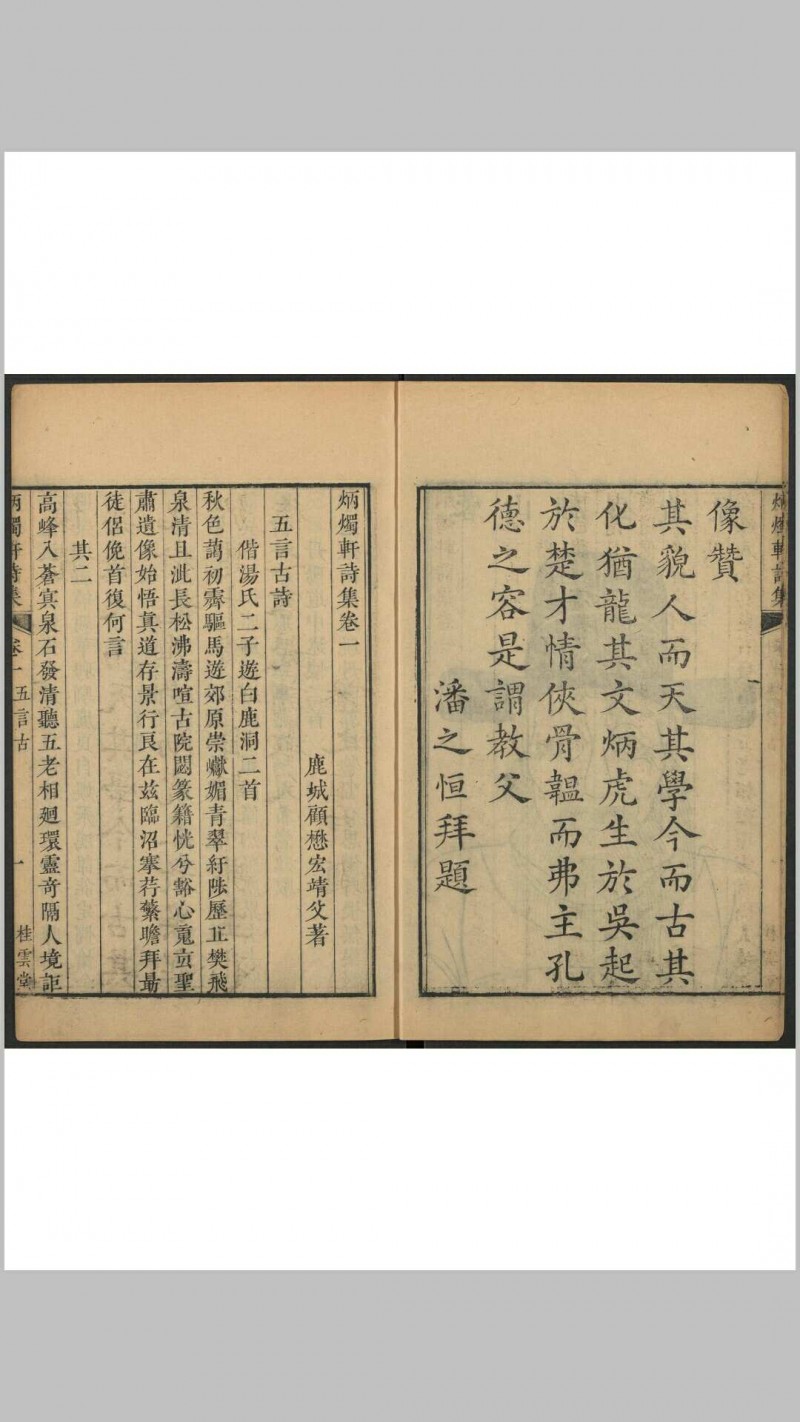 炳燭軒詩集
像贊
其貌人而天其學今而古其
化猶龍其文炳虎生於吳起
於楚才情俠骨韞而弗主孔
德之容是謂教父
潘之恒拜題
炳燭軒詩集卷一
鹿城顧懋宏靖父著
五言古詩
偕湯氏二子遊白鹿洞二首
秋色藹初霽驅馬遊郊原崇巘媚青翠紆陟歷丘樊飛
泉清且泚長松沸濤喧古院閟篆籍恍兮豁心寬亰聖
肅遺像始悟真道存景行良在茲臨沼搴荇蘩瞻拜最
徒侶俛首復何言
其二
高峰入蒼㝠泉石發清聽五老相迴環靈奇隔人境詎
炳燭軒詩集 卷一 五言古 一 桂雲堂